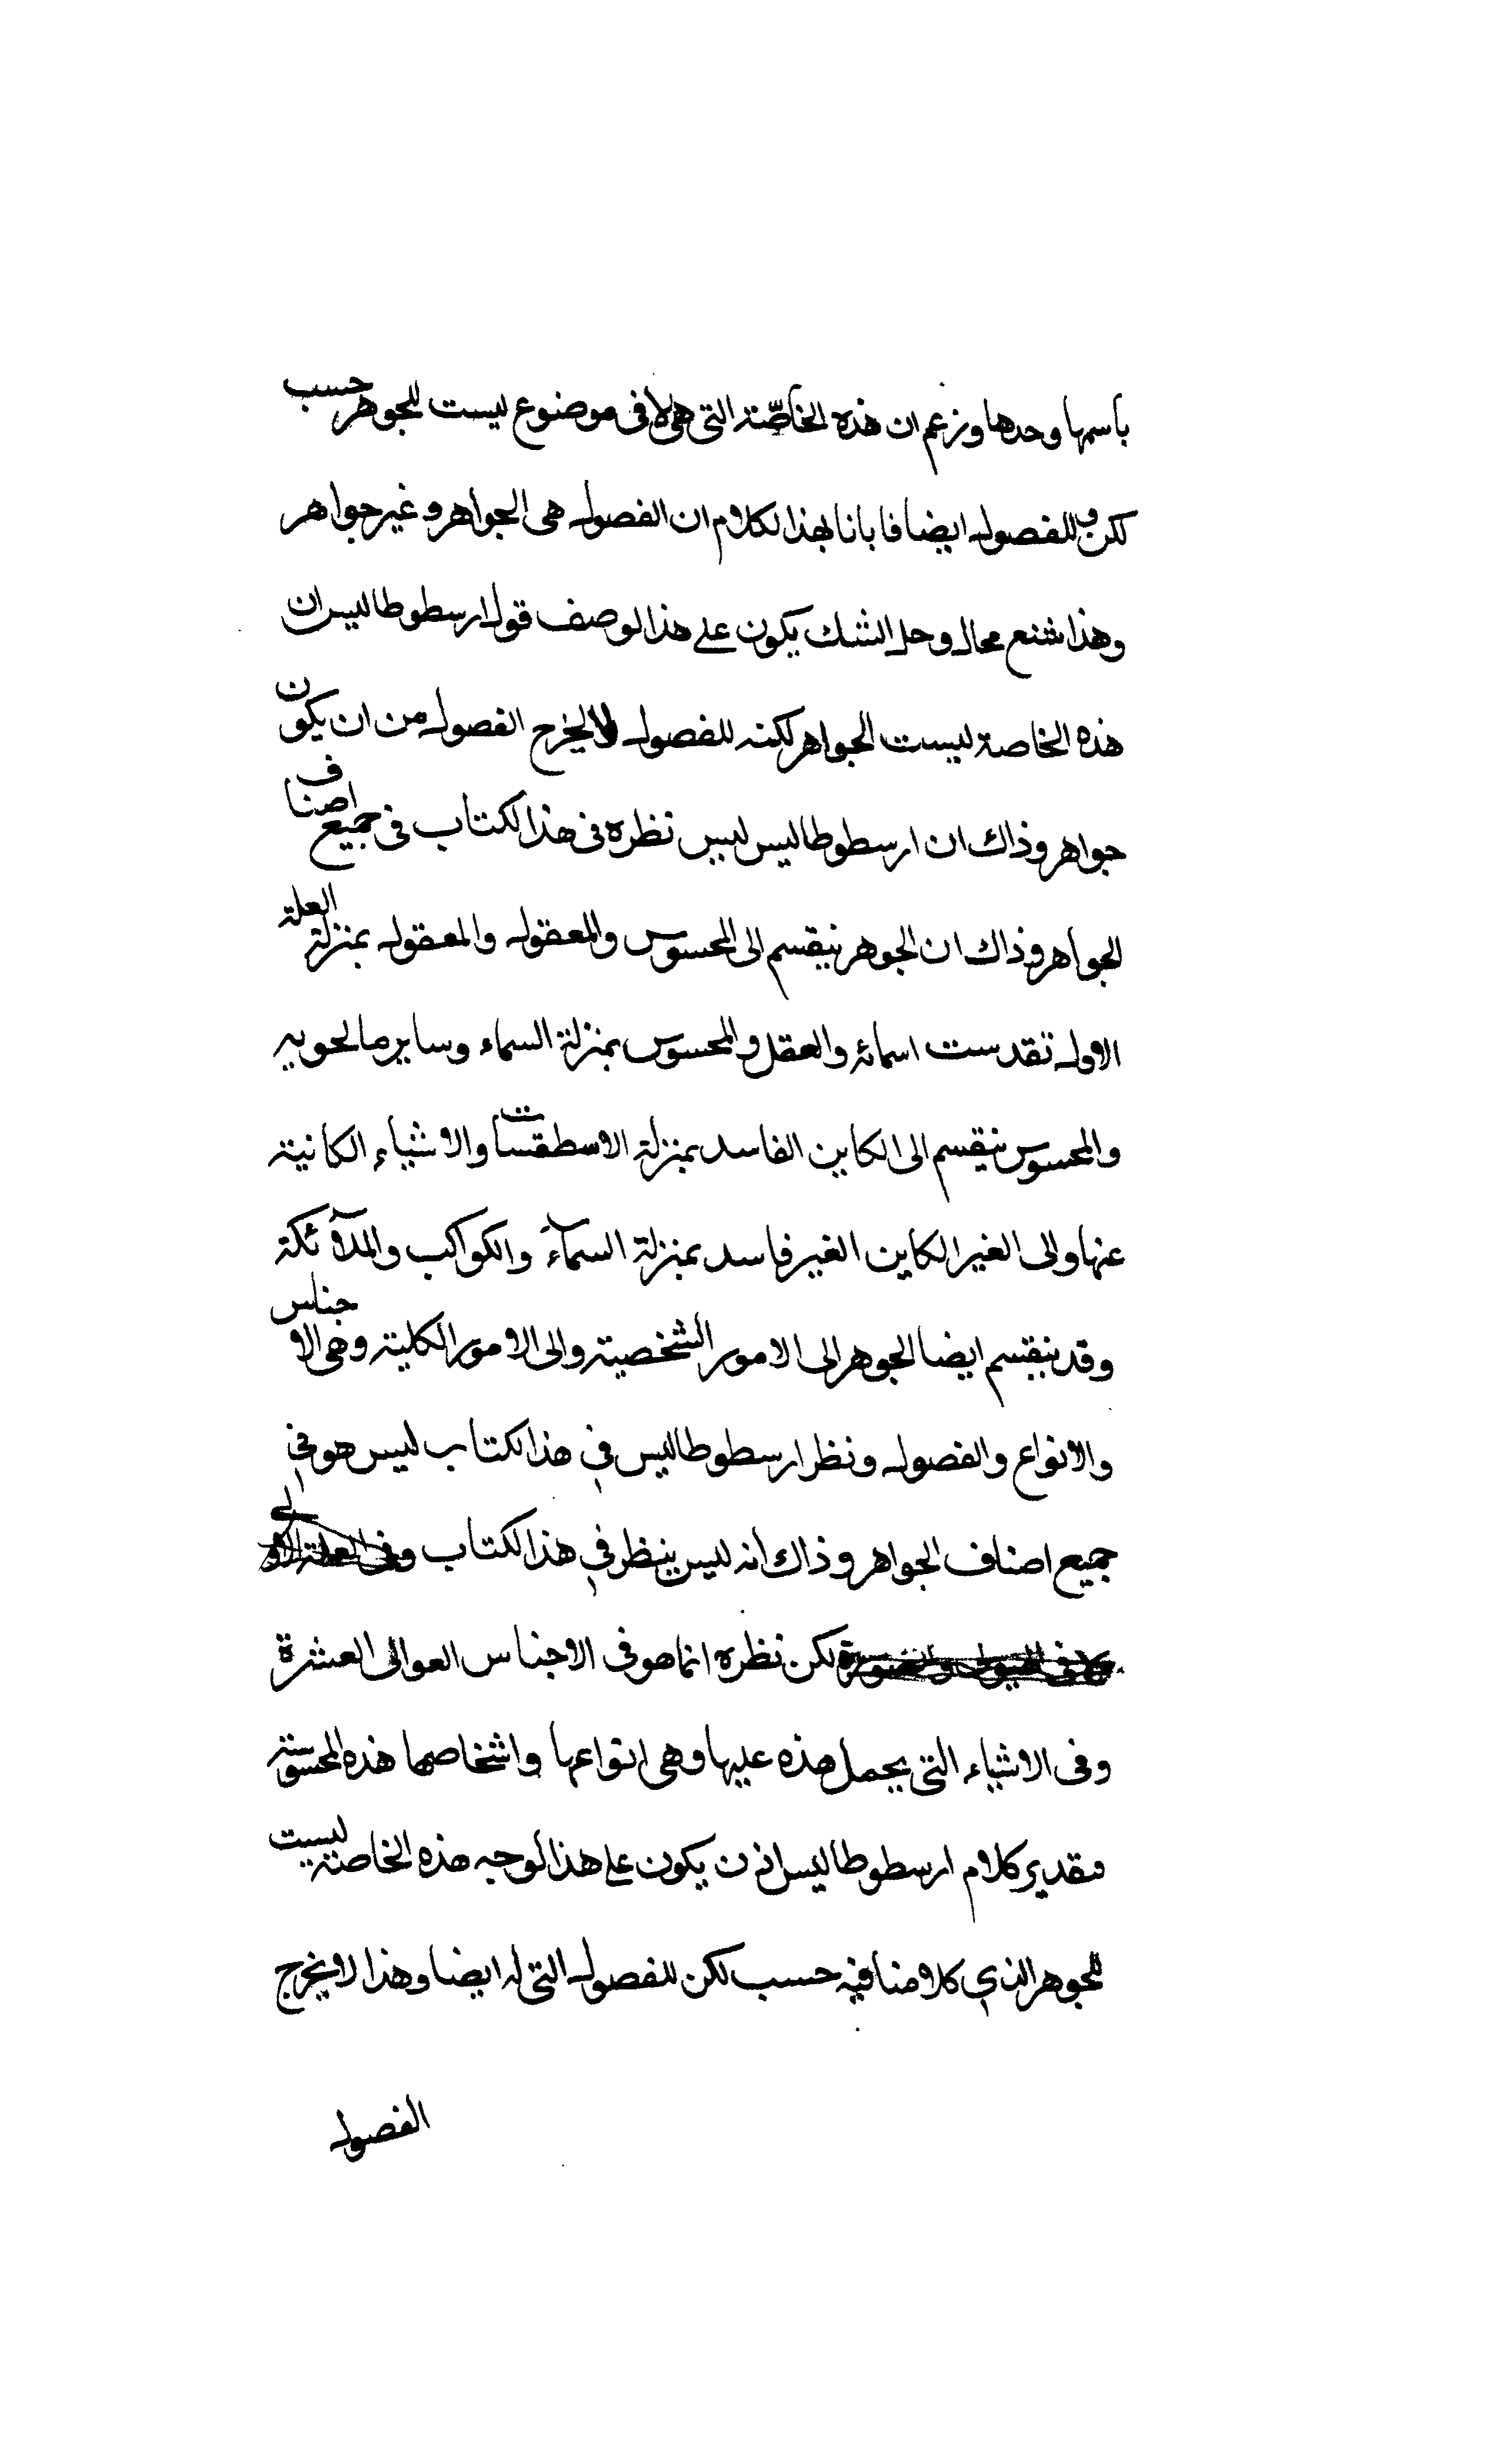 باسمها وحدها وزعم ان هذه الخاصّة التى هى لا فى موضوع ليست للجوهر حسب
لكن وللفصول ايضا فابانا بهذا لكلام ان الفصول هى الجواهر و غير جواهر
وهذا شنع محال وحل الشك يكون على هذا لوصف قول ارسطوطاليس ان
هذه الخاصة ليست الجواهر لكنه للفصول لا يخرج الفصول من ان يكون
جواهر وذاك ان ارسطوطاليس ليس نظره فى هذا لكتاب فى جميع اصناف
الجواهر وذاك ان الجوهر ينقسم الى المحسوس والمعقول والمعقول بمنزلة العلة
الاول تقدست اسمائه والعقل والمحسوس بمنزلة السماء وساير ما لحويه
والمحسوس ينقسم الى الكاين الفاسد بمنزلة الاسطقسات والاشياء الكانية
عنها والى الغير الكاين الغير فاسد بمنزلة السمآء والكواكب والملآئكة
وقد ينقسم ايضا الجوهر الى الامور الشخصية والى الامور الكلية وهى الاجناس
والانواع والفصول ونظر ارسطوطاليس فى هذا لكتاب ليس هو فى
جميع اصناف الجواهر وذاك انه ليس ينظر فى هذا لكتاب وفى العلة الاولى
ولا فى الهيولى والصورة لكن نظره انما هو فى الاجناس العوالى العشرة
وفى الاشياء التى يحمل هذه عليها وهى انواعها واشخاصها هذه المحسوسة
فتقدير كلام ارسطوطاليس اذن يكون على هذا لوجه هذه الخاصة ليست
للجوهر الذى كلامنا فيه حسب لكن للفصول التى له ايضا وهذا لا يخرج
الفصول